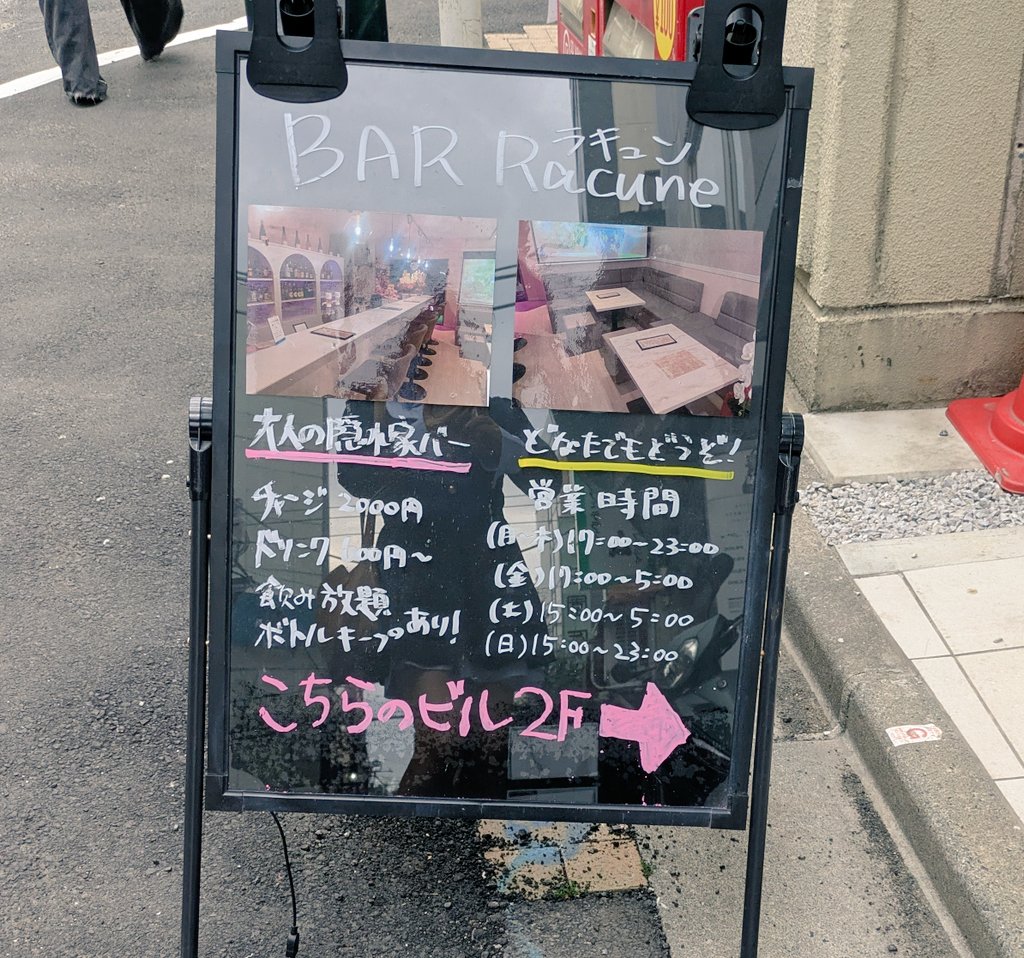 BAR Racune
ラキュン
大人の隠れ家バー
チャージ 2000円
ドリンク 600円～
飲み放題
ボトルキープのあり!
どなたでもどうぞ!
営業時間
(月～木) 17:00～23:00
(金) 17:00～5:00
(土) 15:00～5:00
(日) 15:00～23:00
こちらのビル 2F
100